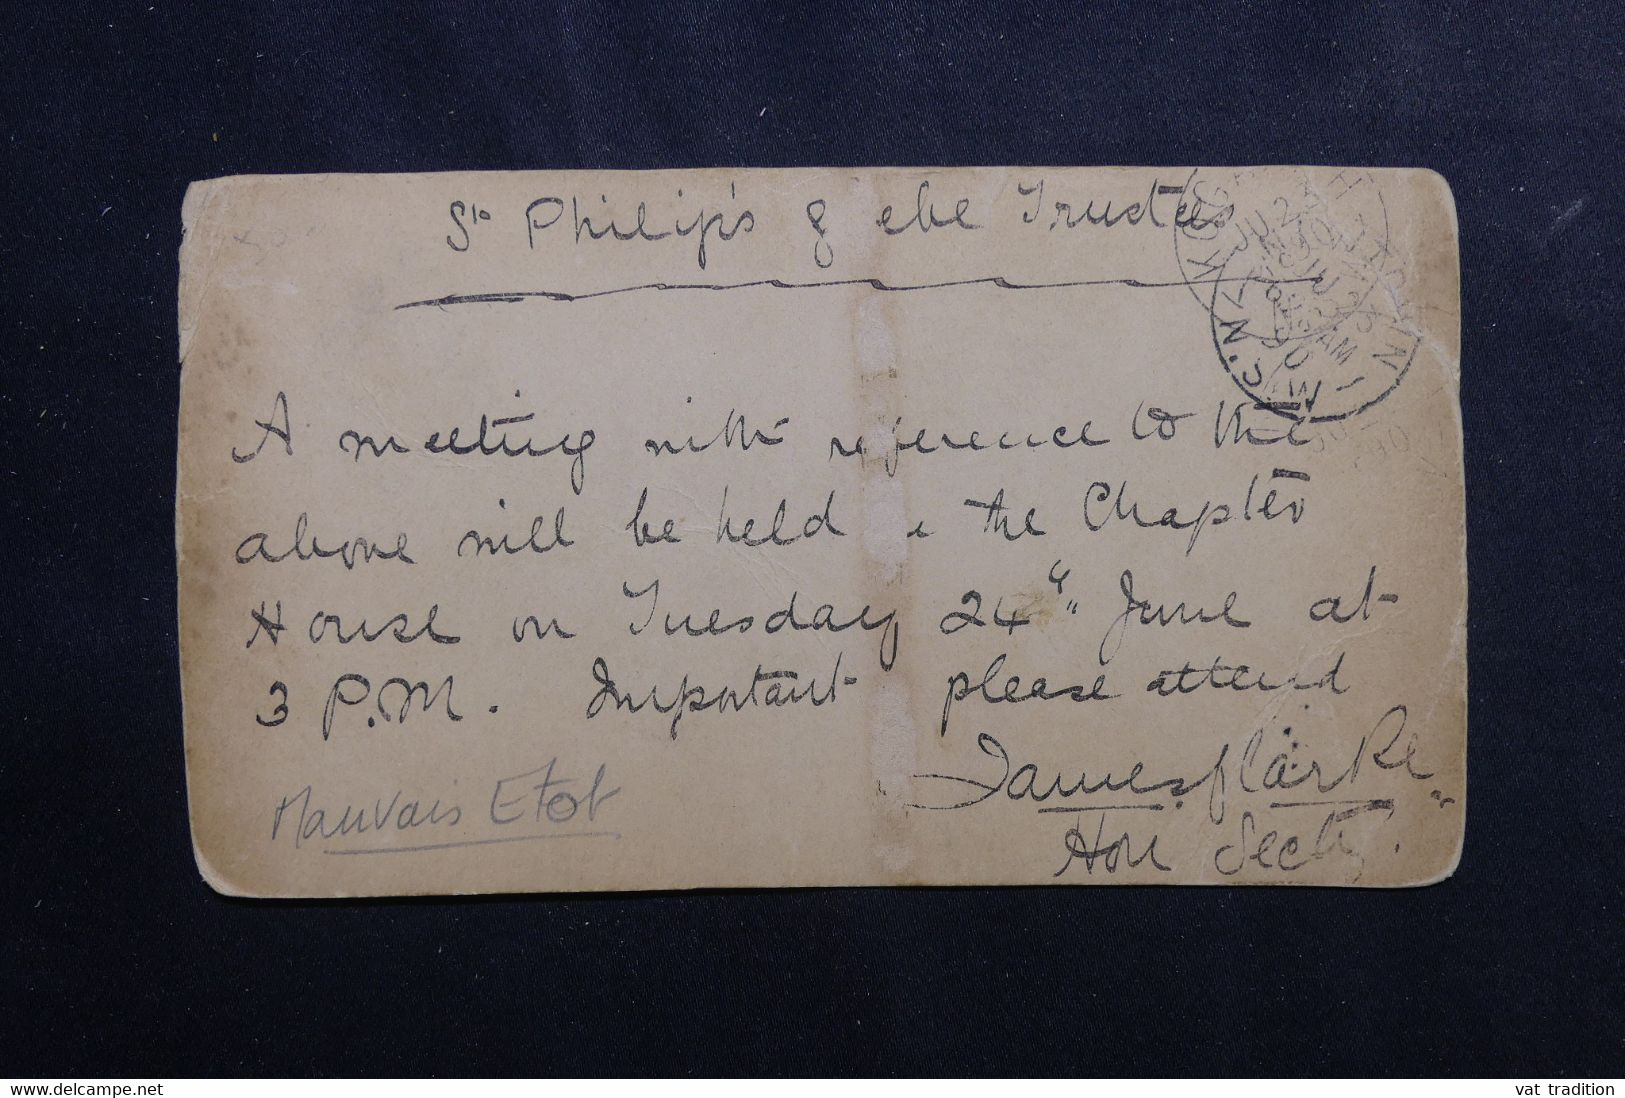 St. Philip's g ebe Trustees
A meeting with reference to the
above will be held the Chapter
House on Tuesday 24th June at
3 P.M. Important please attend
James Clarke
Hon Secty.
Mauvais Etat
N.S.W
AM
www.delcampe.net
vat_tradition